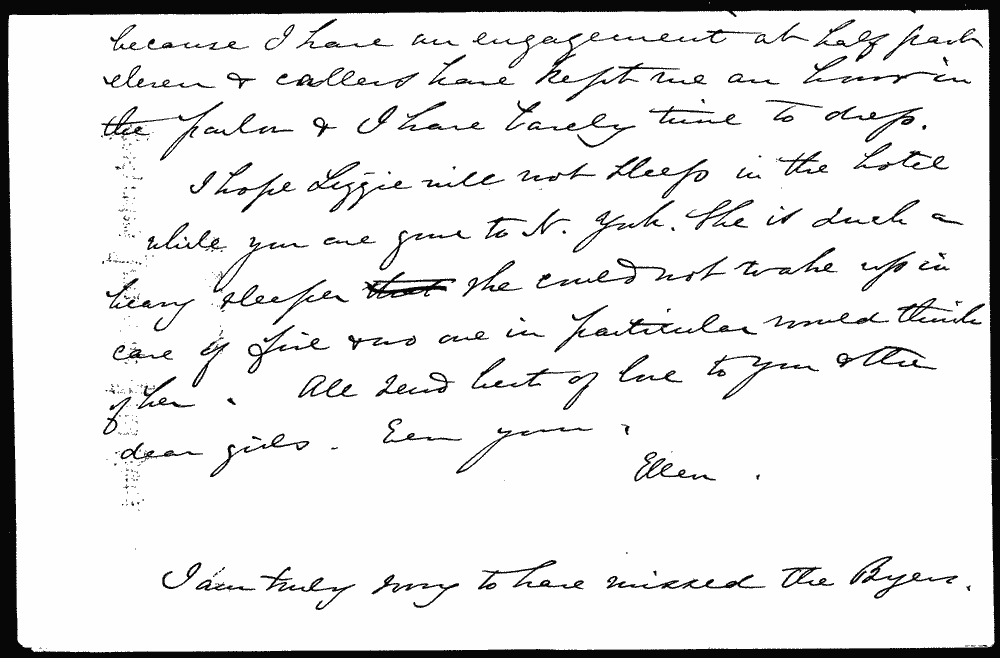 because I have an engagement at half past
eleven & callers have kept me an hour in
the parlor & I have barely time to dress.
I hope Lizzie will not sleep in the hotel
while you are gone to N. York. She is such a
heavy sleeper that she could not wake up in
case of fire & no one in particular would think
of her. All send best of love to you & the
dear girls. Ever yours,
Ellen.
I am truly sorry to have missed the Byers.